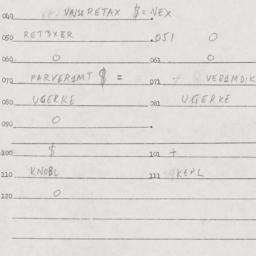 040 VAJURETAX $ = NEX
050 RETBXER .051 0
0 061 0
070 PARVERIMT $ = 071 + VERIMDIK
080 UGERKE 081 UGERKE
090 0
100 $ 101 +
110 KNOBL 111 KEPL
120 0